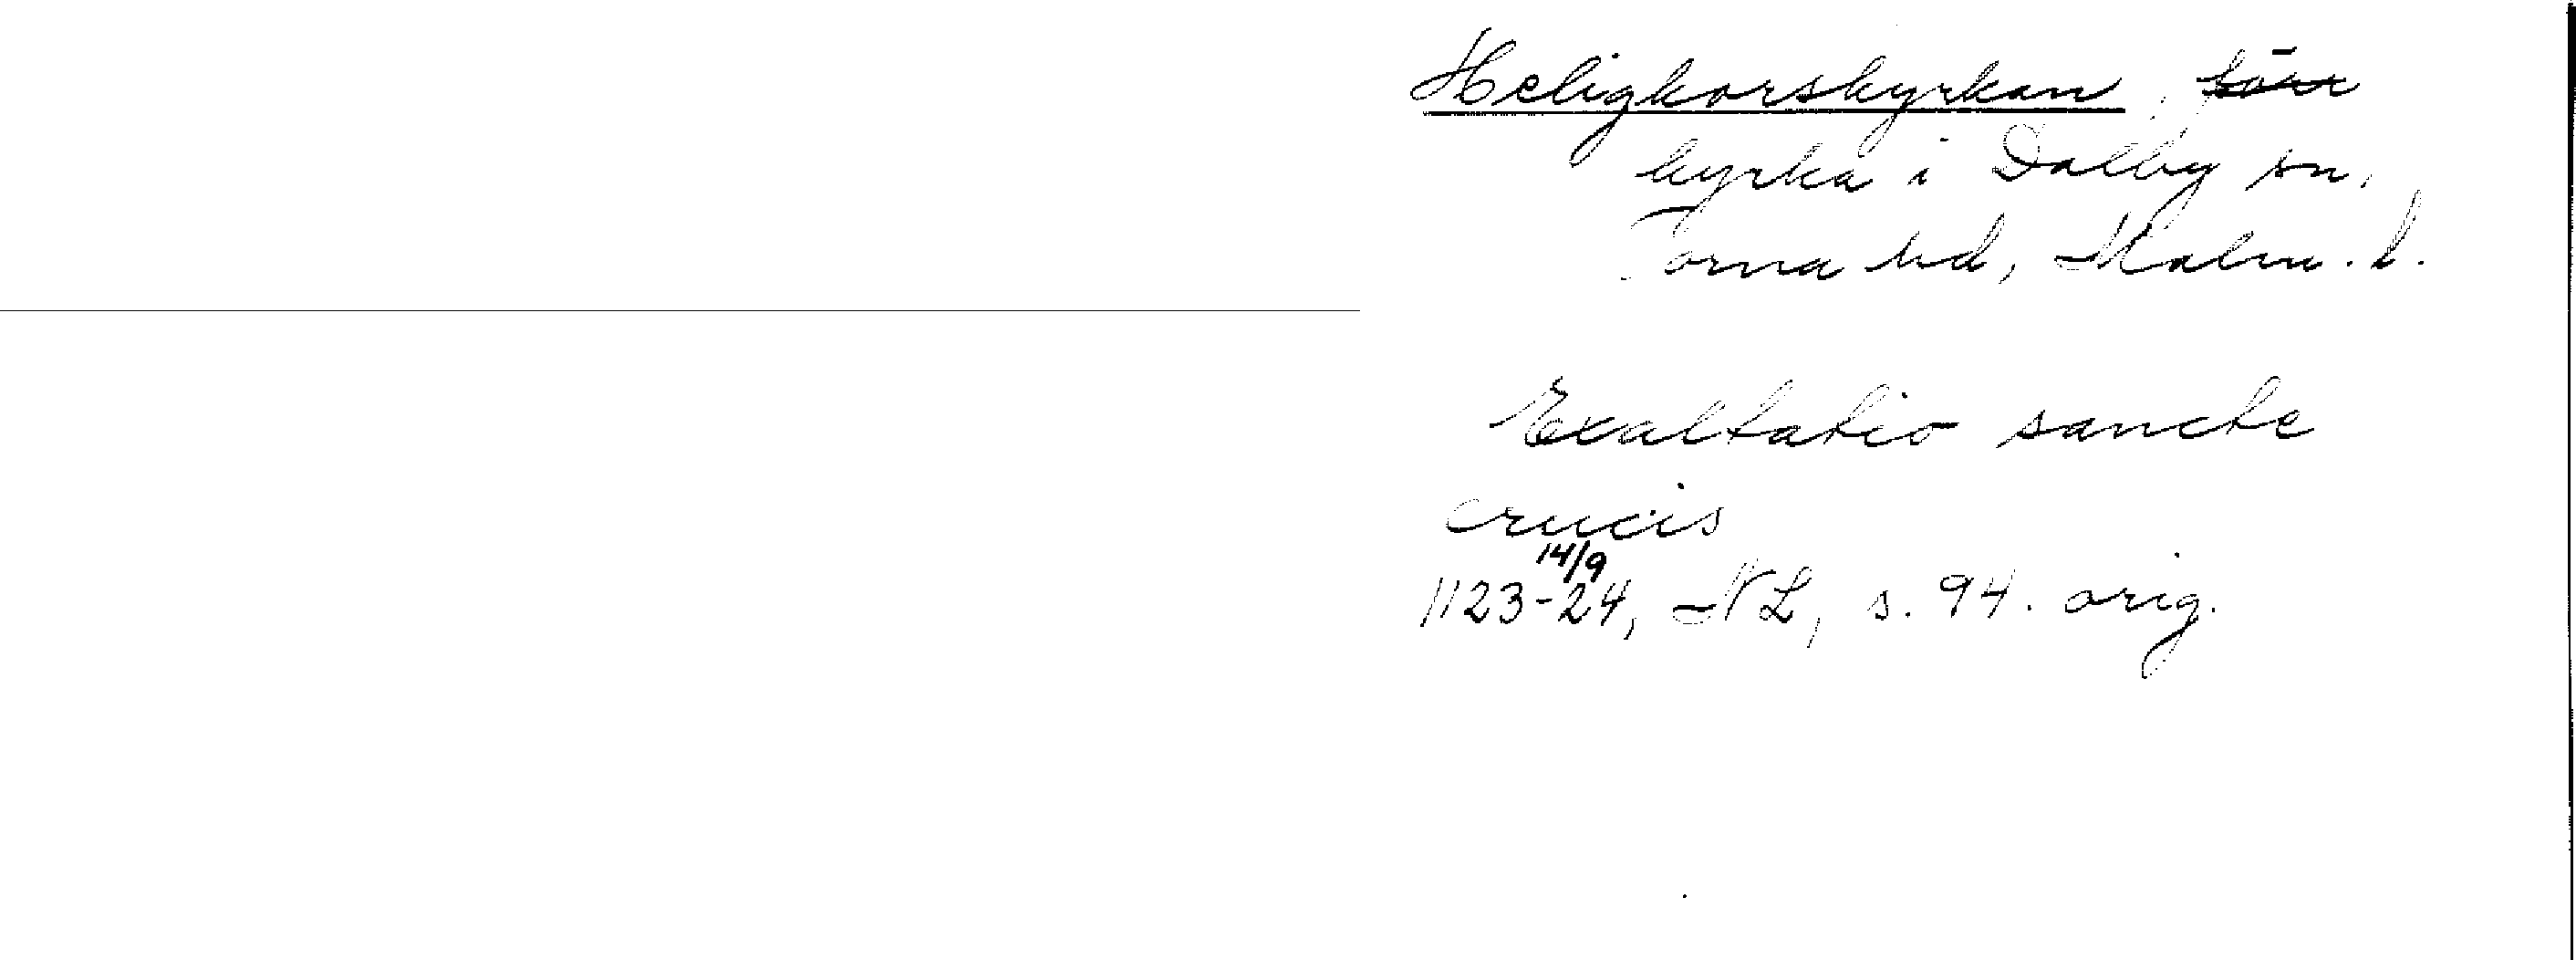 Heligkorskyrkan, förr
kyrka i Dalby sn,
Torna hd, Malm. l.
Exaltatio sancte
crucis
14/9
1123-24, NL, s. 94. orig.